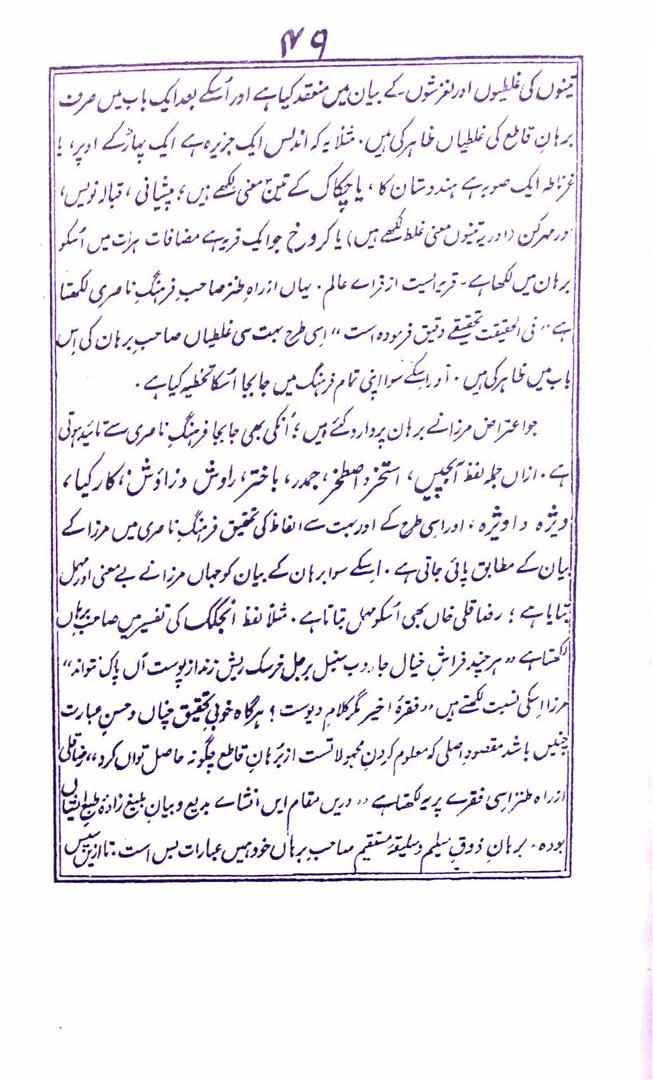 ۴۹
تینوں کی غلطیوں اور لغزشوں کے بیان میں منعقد کیا ہے اور اُسکے بعد ایک باب میں صرف
برہانِ قاطع کی غلطیاں ظاہر کی ہیں۔ مثلا یہ کہ اندلس ایک جزیرہ ہے ایک پہاڑ کے اوپر، یا
غرناطہ ایک صوبہ ہے ہندوستان کا، یا چکاک کے تین معنی لکھے ہیں؛ پیشانی، قبالہ نویس،
اور مہرکن (اور یہ تینوں معنی غلط لکھے ہیں) یا کروخ جو ایک قریہ ہے مضافات ہرات میں اُسکو
برہان میں لکھا ہے۔ قریہ ایست از قراے عالم۔ یہاں از راہِ طنز صاحبِ فرہنگِ ناصری لکھتا
ہے "فی الحقیقت تحقیقے دقیق فرمودہ است" اِسی طرح بہت سی غلطیاں صاحبِ برہان کی اِس
باب میں ظاہر کی ہیں۔ اور اِسکے سوا اپنی تمام فرہنگ میں جابجا اُسکا تخطیہ کیا ہے۔
جو اعتراض مرزا نے برہان پر وارد کئے ہیں؛ اُنکی بھی جابجا فرہنگِ ناصری سے تائید ہوتی
ہے۔ ازاں جملہ لفظ آبچیں، استخر و اصطخر، جمدر، باختر، راوش و زاؤش، کارکیا،
ویژہ و اویژہ، اور اِسی طرح کے اور بہت سے الفاظ کی تحقیق فرہنگِ ناصری میں مرزا کے
بیان کے مطابق پائی جاتی ہے۔ اِسکے سوا برہان کے بیان کو جہاں مرزا نے بے معنی اور مہمل
بتایا ہے؛ رضا قلی خاں بھی اُسکو مہمل بتاتا ہے۔ مثلا لفظ انجلک کی تفسیر میں صاحبِ برہاں
لکھتا ہے "ہر چند فراشِ خیال جاروب سنبل بر جل خرسک ریش زند از پوست آں پاک نتواند"
مرزا اِسکی نسبت لکھتے ہیں "فقرۂ اخیر مگر کلامِ دیوست؟ ہرگاہ خوبیِ تحقیق چناں و حسنِ عبارت
چنیں باشد مقصودِ اصلی کہ معلوم کردنِ مجہولاتست از بُرہانِ قاطع چگونہ حاصل تواں کرد" رضا قلی
از راہِ طنز اِسی فقرے پر یہ لکھتا ہے "دریں مقام ایں انشاے بدیع و بیانِ بلیغ زادۂ طبعِ ایشاں
بودہ۔ برہانِ ذوقِ سلیم و سلیقۂ مستقیم صاحبِ برہاں خود ہمیں عبارات بس است؛ تا ازین سپس